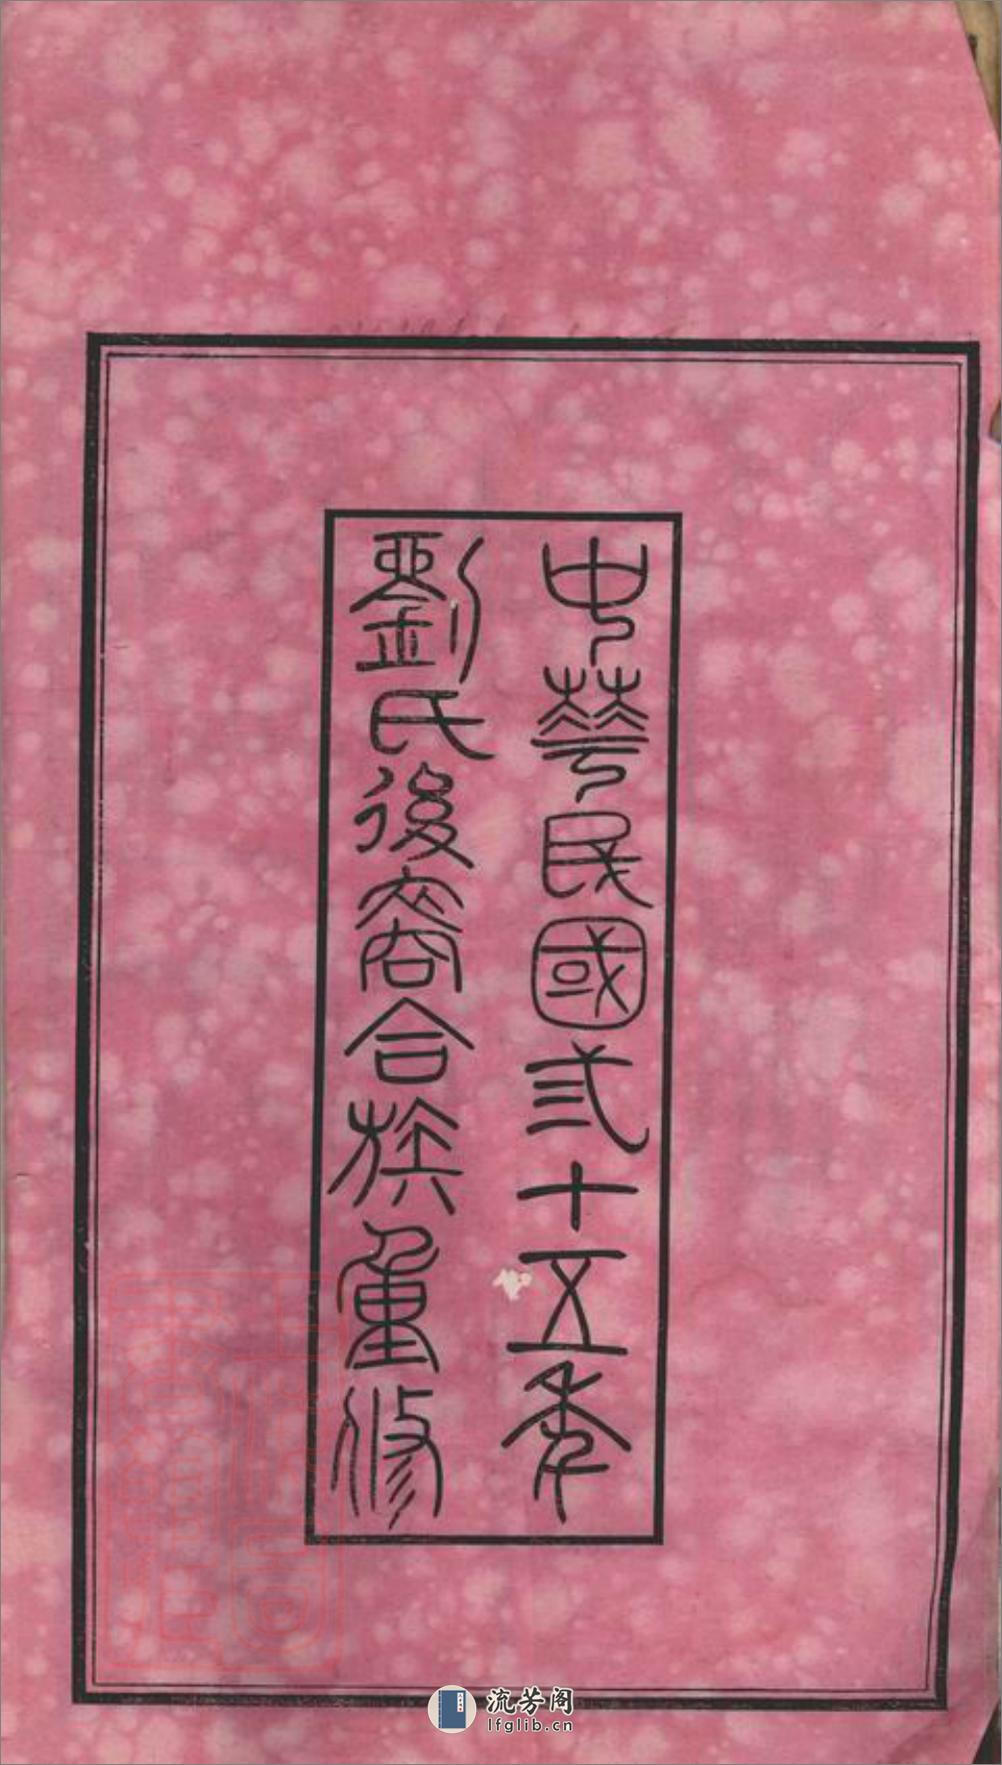 中華民國弍十五年
劉氏後裔合族重修
流芳阁
lfglib.cn